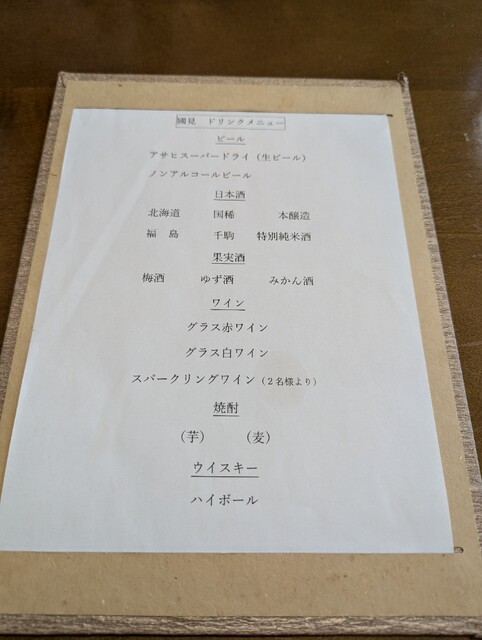 國見 ドリンクメニュー
ビール
アサヒスーパードライ（生ビール）
ノンアルコールビール
日本酒
北海道 国稀 本醸造
福 島 千駒 特別純米酒
果実酒
梅酒 ゆず酒 みかん酒
ワイン
グラス赤ワイン
グラス白ワイン
スパークリングワイン（２名様より）
焼酎
（芋） （麦）
ウイスキー
ハイボール